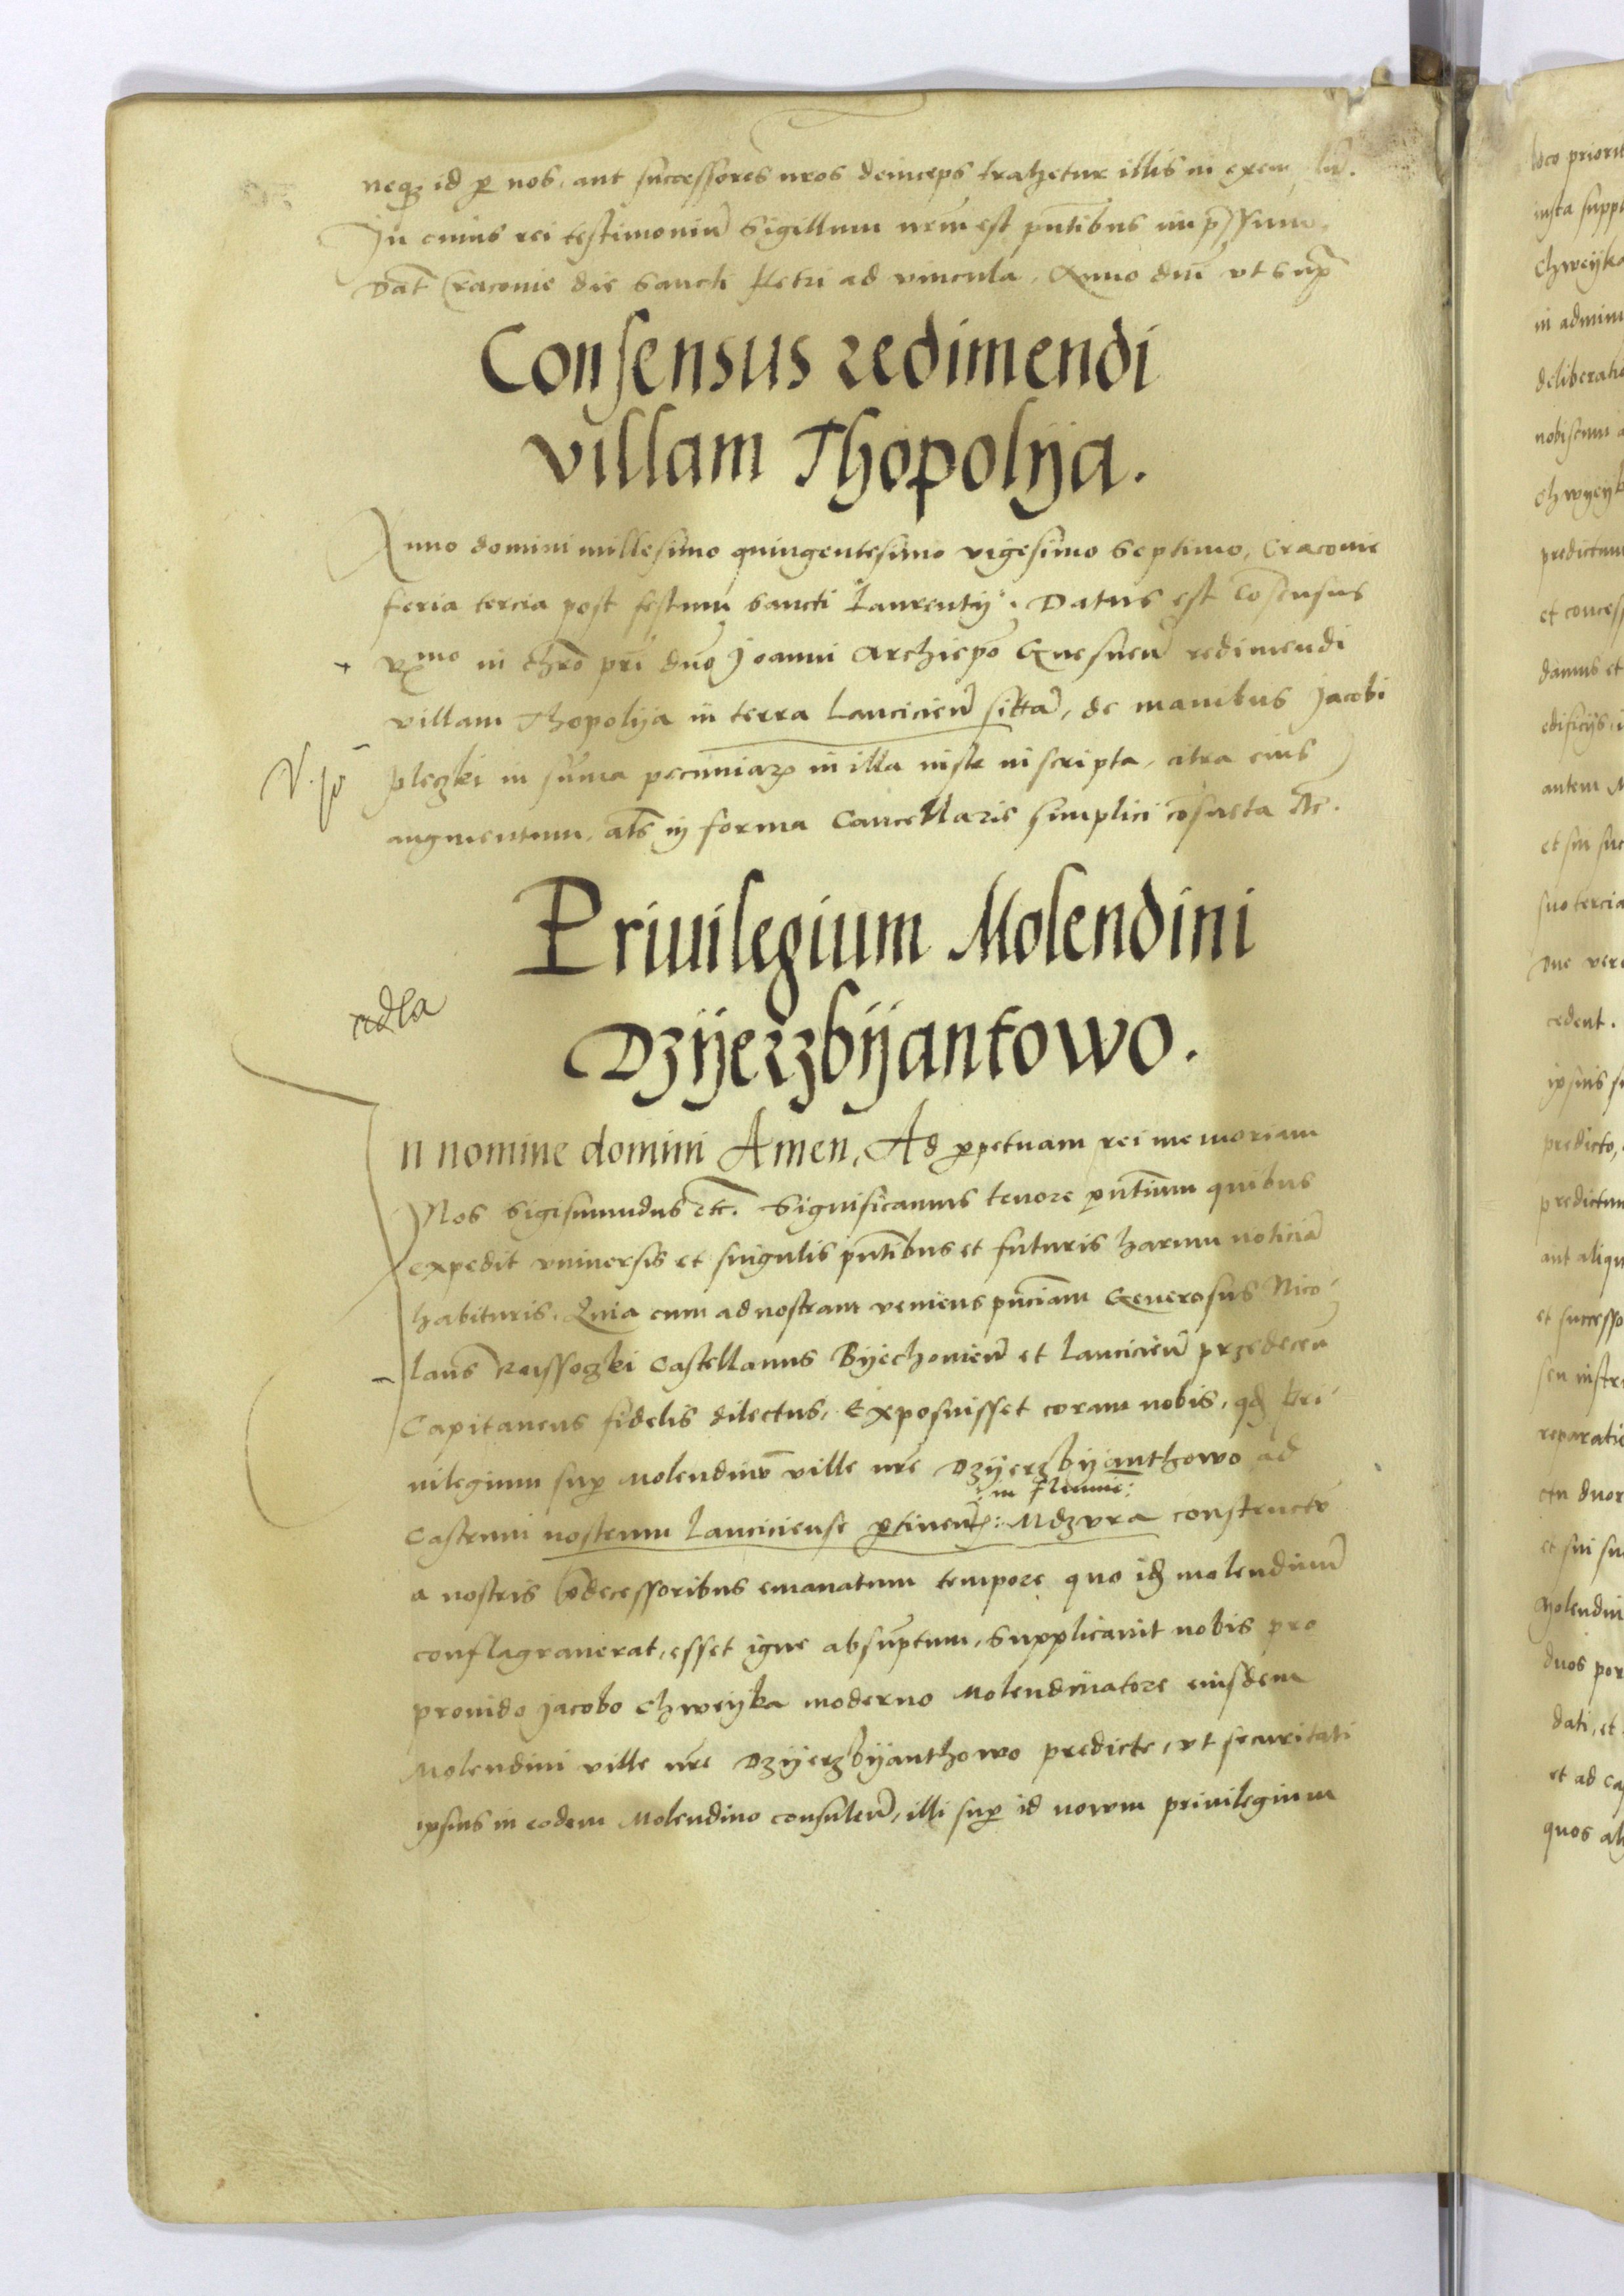 neqʒ id ꝑ nos, aut successores nros deinceps trahetur illis in exem lū.
In cuius rei testimoniū Sigillum nrm̄ est pn̄tibus imp̄ssum.
Dat̄ Cracouie die Sancti Petri ad vincula, Anno dn̄i vt sup̄
Consensus redimendi
villam Thopolija.
Anno domini millesimo quingentesimo vigesimo Septimo, Cracouie
feria tercia post festum sancti Laurentij. Datus est Cōsensus
Rmo in chrō pr̄i dn̄o Joanni Archiepō Gnesnen̄ redimendi
villam Thopolija in terra Lancicien̄ sittā, de manibus Jacobi
Pleczki in sūma pecuniaꝝ in illa iuste inscripta, citra eius
augmentum, als̄ in forma Cancellarie simplici cōsueta etc.
Priuilegium Molendini
Dzijerzbijantowo.
In nomine domini Amen, Ad ꝑpetuam rei memoriam
Nos Sigismundus etc. Significamus tenore pn̄tium quibus
expedit vniuersis et singulis pn̄tibus et futuris harum noticiā
habituris. Quia cum ad nostram veniens pn̄ciam Generosus Nico
laus Russoczki Castellanus Bijechouien̄ et Lancicien̄ przedecen̄
Capitaneus fidelis dilectus, Exposuisset coram nobis, qd̄ Pri
uilegium suꝑ Molendinū ville nr̄e Dzijerzbijanthowo ad
in flumine:
Castrum nostrum Lanciciense ꝑtinen̄: Mdzura constructū
a nostris p̄decessoribus emanatum tempore quo idʒ molendinū
conflagrauerat, esset igne absūptum, Supplicauit nobis pro
prouido Jacobo Chweijka moderno Molendinatore eiusdem
Molendini ville nr̄e Dzijerzbijanthowo predicte, vt securitati
ipsius in eodem Molendino consulen̄, illi suꝑ id nouum priuilegium